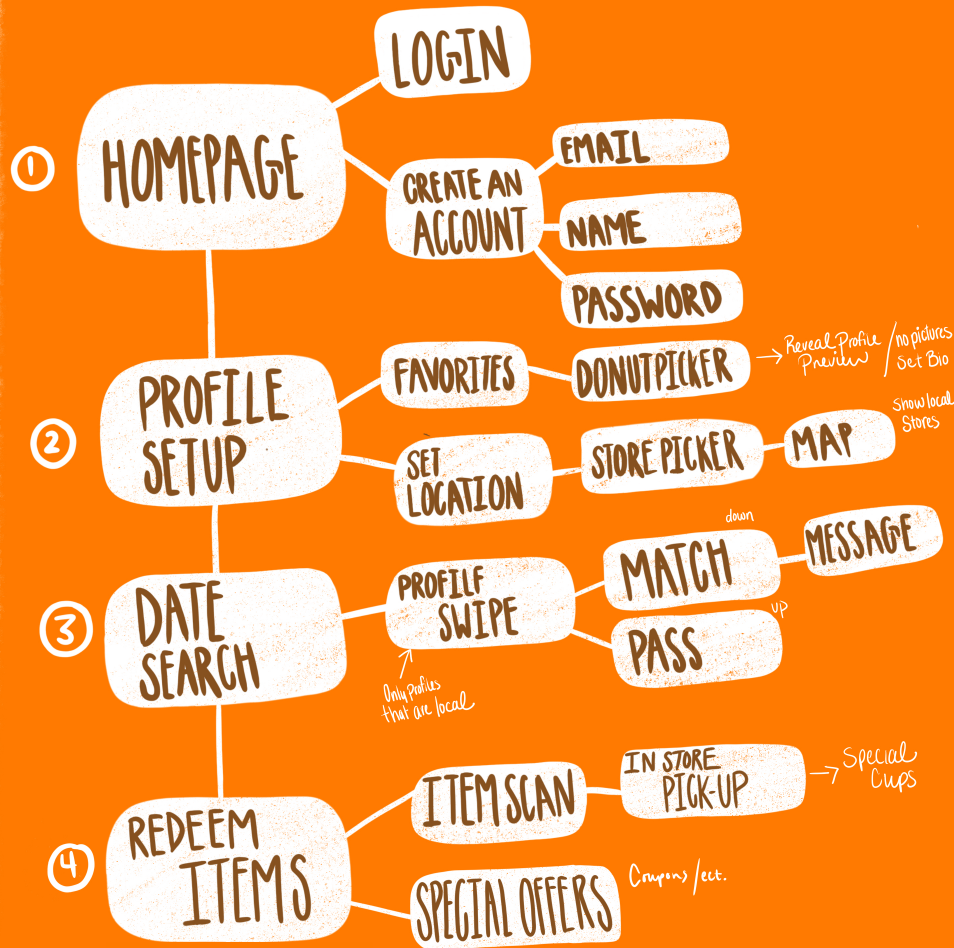 LOGIN
1
HOMEPAGE
CREATE AN
ACCOUNT
EMAIL
NAME
PASSWORD
2
PROFILE
SETUP
FAVORITES
DONUT PICKER
Reveal Profile
Preview
/ no pictures
Set Bio
SET
LOCATION
STORE PICKER
MAP
Show local
Stores
3
DATE
SEARCH
PROFILE
SWIPE
Only Profiles
that are local
MATCH
down
MESSAGE
PASS
up
4
REDEEM
ITEMS
ITEM SCAN
IN STORE
PICK-UP
Special
Cups
SPECIAL OFFERS
Coupons/ect.